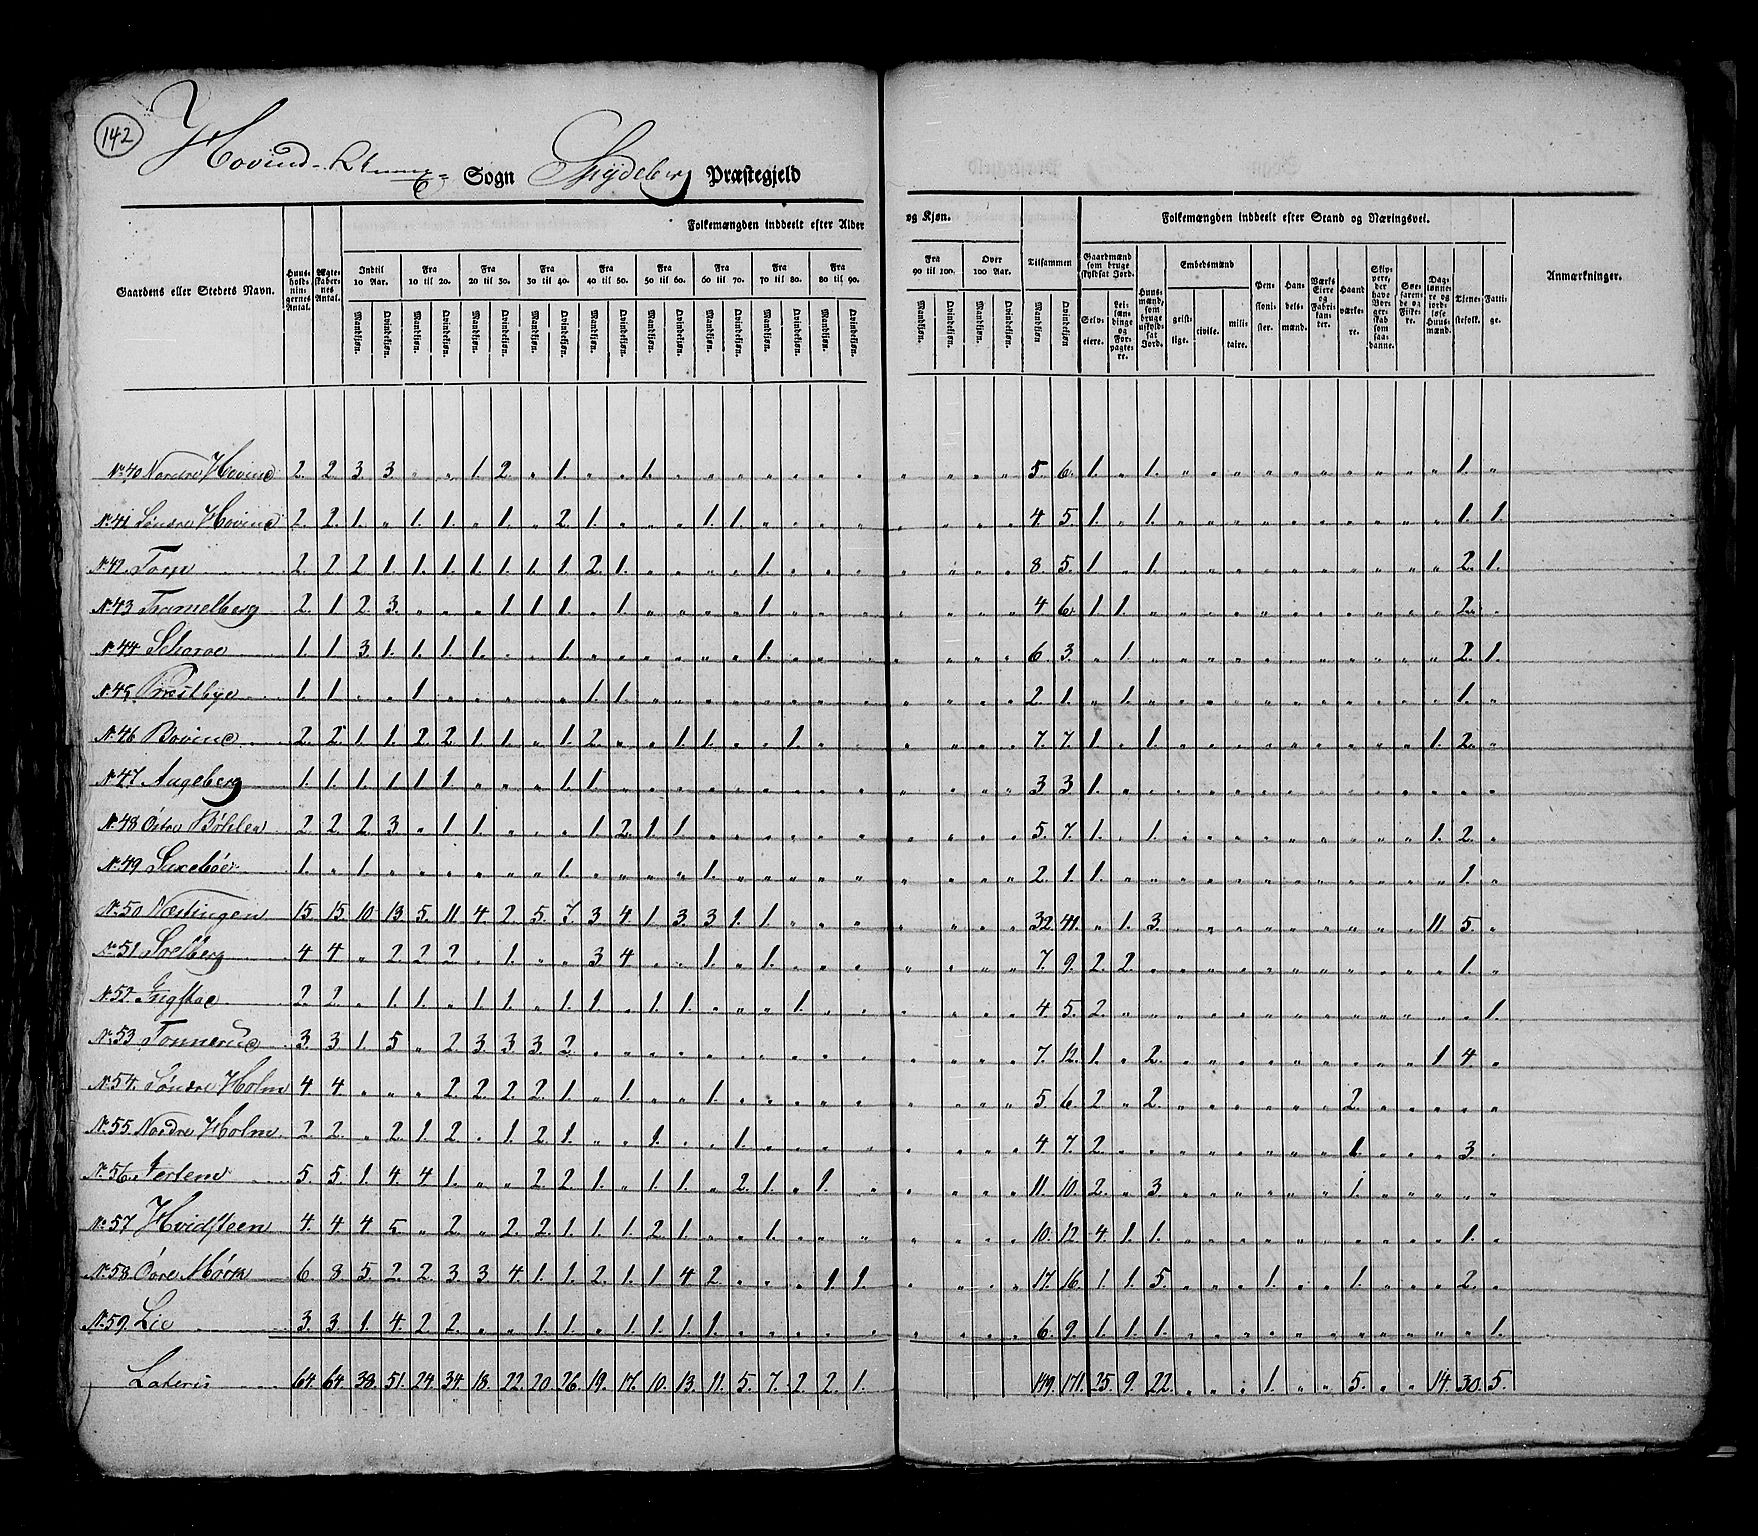 142
Hovind Sogn Skydeberg Præstegjeld
Gaardens eller Stedets Navn.
Huusholdningernes Antal.
Ægteskabernes Antal.
Folkemængden inddeelt efter Alder og Kjøn.
Indtil 10 Aar. Fra 10 til 20. Fra 20 til 30. Fra 30 til 40. Fra 40 til 50. Fra 50 til 60. Fra 60 til 70. Fra 70 til 80. Fra 80 til 90. Fra 90 til 100. Over 100 Aar. Tilsammen
Mandkjøn. Qvindekjøn. Mandkjøn. Qvindekjøn. Mandkjøn. Qvindekjøn. Mandkjøn. Qvindekjøn. Mandkjøn. Qvindekjøn. Mandkjøn. Qvindekjøn. Mandkjøn. Qvindekjøn. Mandkjøn. Qvindekjøn. Mandkjøn. Qvindekjøn. Mandkjøn. Qvindekjøn. Mandkjøn. Qvindekjøn. Mandkjøn. Qvindekjøn
Folkemængden inddeelt efter Stand og Næringsvei.
Gaardmænd som bruge skyldsat Jord.
Selveiere.
Leilændinge og Forpagtere.
Huusmænd, som bruge uskyldsat Jord.
Embedsmænd
geistlige. civile. militaire.
Pensionister.
Handelsmænd.
Værks Eiere og Fabrikanter.
Haandværkere.
Skippere, der have Borgerskab som saadanne.
Søefarende og Fiskere.
Dagsønnere og jordløse Huusmænd.
Tjenestefolk.
Fattige.
Anmærkninger.
No 40 Nordre Hovind 2. 2 3. 3. „ „ 1. 2. „ 1. „ „ 1. „ „ „ „ „ „ „ „ „ „ „ 5. 6. 1. „ 1. „ „ „ „ „ „ „ „ „ „ 1. „
No 41 Søndre Hovind 2. 2. 1. „ 1. 1. „ 1. „ 2. 1. „ „ „ 1. 1. „ „ „ „ „ „ „ „ 4 5. 1. „ 1. „ „ „ „ „ „ „ „ „ „ 1. 1.
No 42. Torp 2. 2 2. 1. 1. 1. 1. 1. 1. 1. 2. 1. „ „ „ „ 1. „ „ „ „ „ „ „ 8. 5. 1. „ 1. „ „ „ „ „ „ „ „ „ „ 2. 1.
No 43 Tramelberg 2. 1 2. 3. „ „ „ 1 1 1. „ 1. „ „ „ „ 1. „ „ „ „ „ „ „ 4 6. 1. 1. „ „ „ „ „ „ „ „ „ „ „ 2. „
No 44 1. 1. 3. 1. 1. 1. 1. „ „ 1. „ „ „ „ „ „ 1. „ „ „ „ „ „ „ 6. 3. „ 1. „ „ „ „ „ „ „ „ „ „ „ 2. 1.
No 45 Præstbye 1. 1. „ „ 1. „ „ „ „ „ 1. 1. „ „ „ „ „ „ „ „ „ „ „ „ 2. 1. „ 1. „ „ „ „ „ „ „ „ „ „ „ 1. „
No 46 Bovind 2. 2. 1. 1. 2. 2. 1. 1. „ 1. 2. „ „ 1. 1. „ „ 1. „ „ „ „ „ „ 7. 7. 1. „ 1. „ „ „ „ „ „ „ „ „ 1. 2. „
No 47. Augeberg 1. 1. 1. 1. 1. 1. „ „ „ 1. 1. „ „ „ „ „ „ „ „ „ „ „ „ „ 3 3. 1. „ „ „ „ „ „ „ „ „ „ „ „ „ „
No 48 Østre Bøhler 2. 2 2. 3. „ 1. 1. „ „ „ 1. 2. 1. 1. „ „ „ „ „ „ „ „ „ „ 5. 7. 1. „ 1. „ „ „ „ „ „ „ „ „ 1. 2. „
No 49 1. „ 1. „ „ „ „ „ „ 1. „ „ „ „ 1. „ „ „ „ „ „ „ „ „ 2. 1. 1. „ „ „ „ „ „ „ „ „ „ „ „ 1. „
No 50 Næstingen 15 15. 10 13 5. 11 4 2. 5. 7. 3 4 1. 3. 3 1. 1. „ „ „ „ „ „ „ 32. 41. „ 1. 3. „ „ „ „ „ „ „ „ „ 11 5. „
No 51 Soelberg 4 4 „ 2. 2. 2. „ 1. „ „ 3 4 „ „ 1. „ 1. „ „ „ „ „ „ „ 7. 9. 2. 2. „ „ „ „ „ „ „ „ „ „ „ 1. „
No 52. 2. 2. „ 1. 1. „ 1. 1. „ 1. 1. „ 1. 1. „ „ „ 1. „ „ „ „ „ „ 4. 5. 2. „ „ „ „ „ „ „ „ „ „ „ „ „ 1.
No 53 Tonnerud 3. 3. 1. 5 „ 2 3 3. 3. 2. „ „ „ „ „ „ „ „ „ „ „ „ „ „ 7. 12. 1. „ 2. „ „ „ „ „ „ „ „ „ 1 4. „
No 54. Søndre Holm 4 4. „ „ „ 2 2. 2. 2. 1. „ 1. „ „ 1. „ „ „ „ „ „ „ „ „ 5. 6. 2. „ 2. „ „ „ „ „ „ 2. „ „ „ „ „
No 55 Nordre Holm 2. 2. „ 2. 1. 2. „ 1. 2. 1. „ „ 1. „ „ 1. „ „ „ „ „ „ „ „ 4 7. 2. „ „ „ „ „ „ „ „ 1. „ „ „ 3. „
No 56. 5. 5 1. 4. 4 1. „ „ 2 2. 1. „ 1. 1. „ 2. 1. „ 1. „ „ „ „ „ 11. 10. 2. „ 3. „ „ „ „ „ „ 1. „ „ „ „ „
No 57 Hvidsteen 4. 4 4 5 „ 2. „ 2. 2. 1. 1. 1. 2. 1. „ „ 1. „ „ „ „ „ „ „ 10. 12. 4. 1. 1. „ „ „ „ „ „ „ „ „ „ 1. „
No 58 Øvre Mørk 6. 8 5. 2. 2. 3. 3 4. 1. 1. 2. 1. 1. 4 2. „ „ „ 1. 1. „ „ „ „ 17. 16. 1. 1. 5. „ „ „ 1. „ „ 1. „ „ „ 2. „
No 59. Lie 3. 3. 1. 4. 2. 2. „ „ 1. 1. „ 1. 1. 1. 1. „ „ „ „ „ „ „ „ „ 6. 9. 1. 1. 1. „ „ „ „ „ „ „ „ „ „ „ 1.
Lateris 64. 64. 38. 51. 24. 34. 18. 22. 20. 26. 19. 17. 10. 13. 11. 5. 7. 2. 2. 1. 149. 171. 25. 9. 22. „ „ „ 1. „ „ 5. „ „ 14. 30. 5.